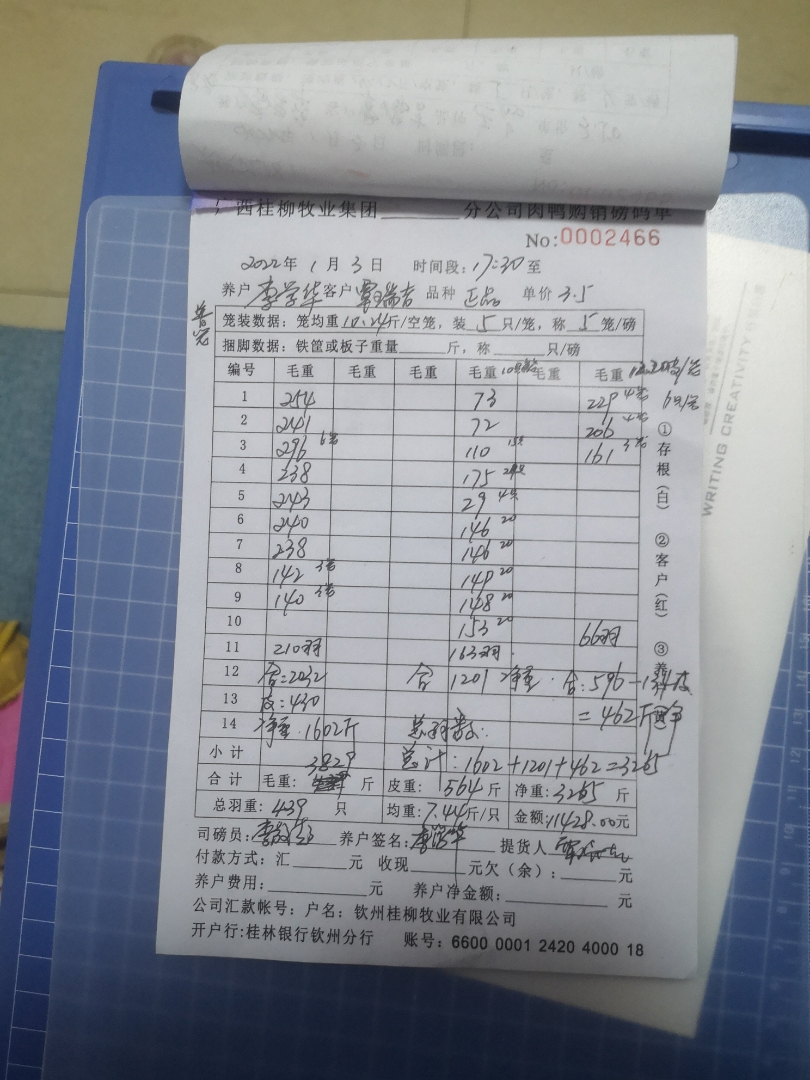 西桂柳牧业集团 分公司肉鸭购销磅码单
No:0002466
2022年 1月 3日 时间段:17:30至
养户 李学华 客户 覃瑞吉 品种 正品 单价 3.5
笼装数据:笼均重10.24斤/空笼,装 5 只/笼,称 5 笼/磅
捆脚数据:铁筐或板子重量 斤,称 只/磅
编号 毛重 毛重 毛重 毛重 毛重 毛重
1 254 73 229 4笼 6只/笼
2 241 72 206 4笼
3 296 6笼 110 161 3笼
4 238 175
5 243 29 4只
6 240 146 20
7 238 146 20
8 142 3笼 149 20
9 140 3笼 148 20
10 153 20 66羽
11 210羽 163羽
12 合:2032 合 1201 净重 合:596-134皮
13 皮:430 =462斤净
14 净重:1602斤 总羽数:
小计 总计:1602+1201+462=3265
合计 毛重:3829斤 皮重:564斤 净重:3265斤
总羽重:439只 均重:7.44斤/只 金额:11428.00元
司磅员: 养户签名:李学华 提货人
付款方式:汇 元 收现 元欠(余): 元
养户费用: 元 养户净金额: 元
公司汇款帐号:户名:钦州桂柳牧业有限公司
开户行:桂林银行钦州分行 账号:6600 0001 2420 4000 18
①存根(白) ②客户(红) ③养
WRITING CREATIVITY